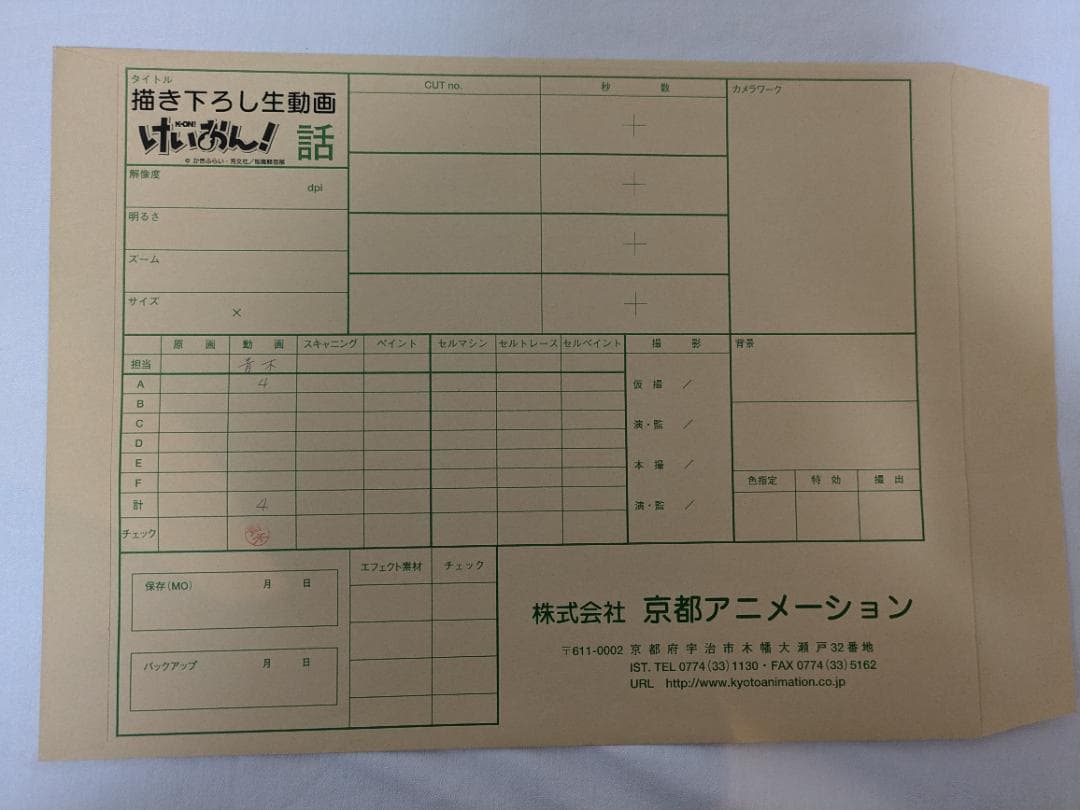 タイトル
描き下ろし生動画
K-ON!
けいおん!
話
© かきふらい・芳文社／桜高軽音部
解像度
dpi
明るさ
ズーム
サイズ
×
CUT no. 秒 数
＋
＋
＋
＋
カメラワーク
原 画 動 画 スキャニング ペイント セルマシン セルトレース セルペイント 撮 影
担当 青木
A 4
B
C
D
E
F
計 4
チェック
仮 撮 ／
演・監 ／
本 撮 ／
演・監 ／
背景
色指定 特 効 撮 出
保存(MO) 月 日
バックアップ 月 日
エフェクト素材 チェック
株式会社 京都アニメーション
〒611-0002 京都府宇治市木幡大瀬戸32番地
IST. TEL 0774(33)1130・FAX 0774(33)5162
URL http://www.kyotoanimation.co.jp